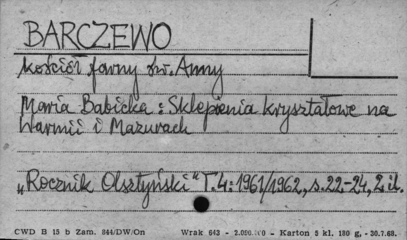 BARCZEWO
kościół farny św. Anny
Maria Babicka : Sklepienia kryształowe na
Warmii i Mazurach
„Rocznik Olsztyński" T.4: 1961/1962, s.22-24, 2 il.
CWD B 15 b Zam. 844/DW/On Wrak 643 - 2.000.000 - Karton 5 kl. 180 g, - 30.7.68.